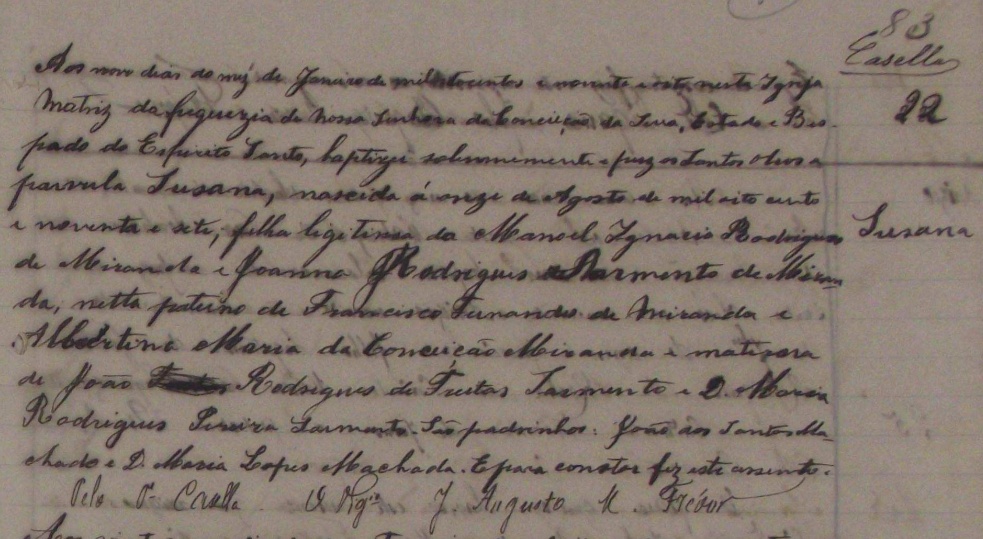 83
Casella
22
Susana
Aos nove dias do mez de Janeiro de mil oitocentos e noventa e oito, nesta Igreja
Matriz da freguezia de Nossa Senhora da Conceição da Serra, Estado e Bis-
pado do Espirito Santo, baptizei solemnemente e puz os Santos Oleos a
parvula Susana, nascida á onze de Agosto de mil oito cento
e noventa e sete, filha legitima de Manoel Ignacio Rodrigues
de Miranda e Joanna Rodrigues Sarmento de Miran
da, netta paterno de Francisco Fernandes de Miranda e
Albertina Maria da Conceição Miranda e materna
de João Rodrigues de Freitas Sarmento e D. Maria
Rodrigues Pereira Sarmento. São padrinhos: João dos Santos Ma-
chado e D. Maria Lopes Machada. E para constar fiz este assento.
Pelo P. Casella. O Vigr.º J. Augusto M.